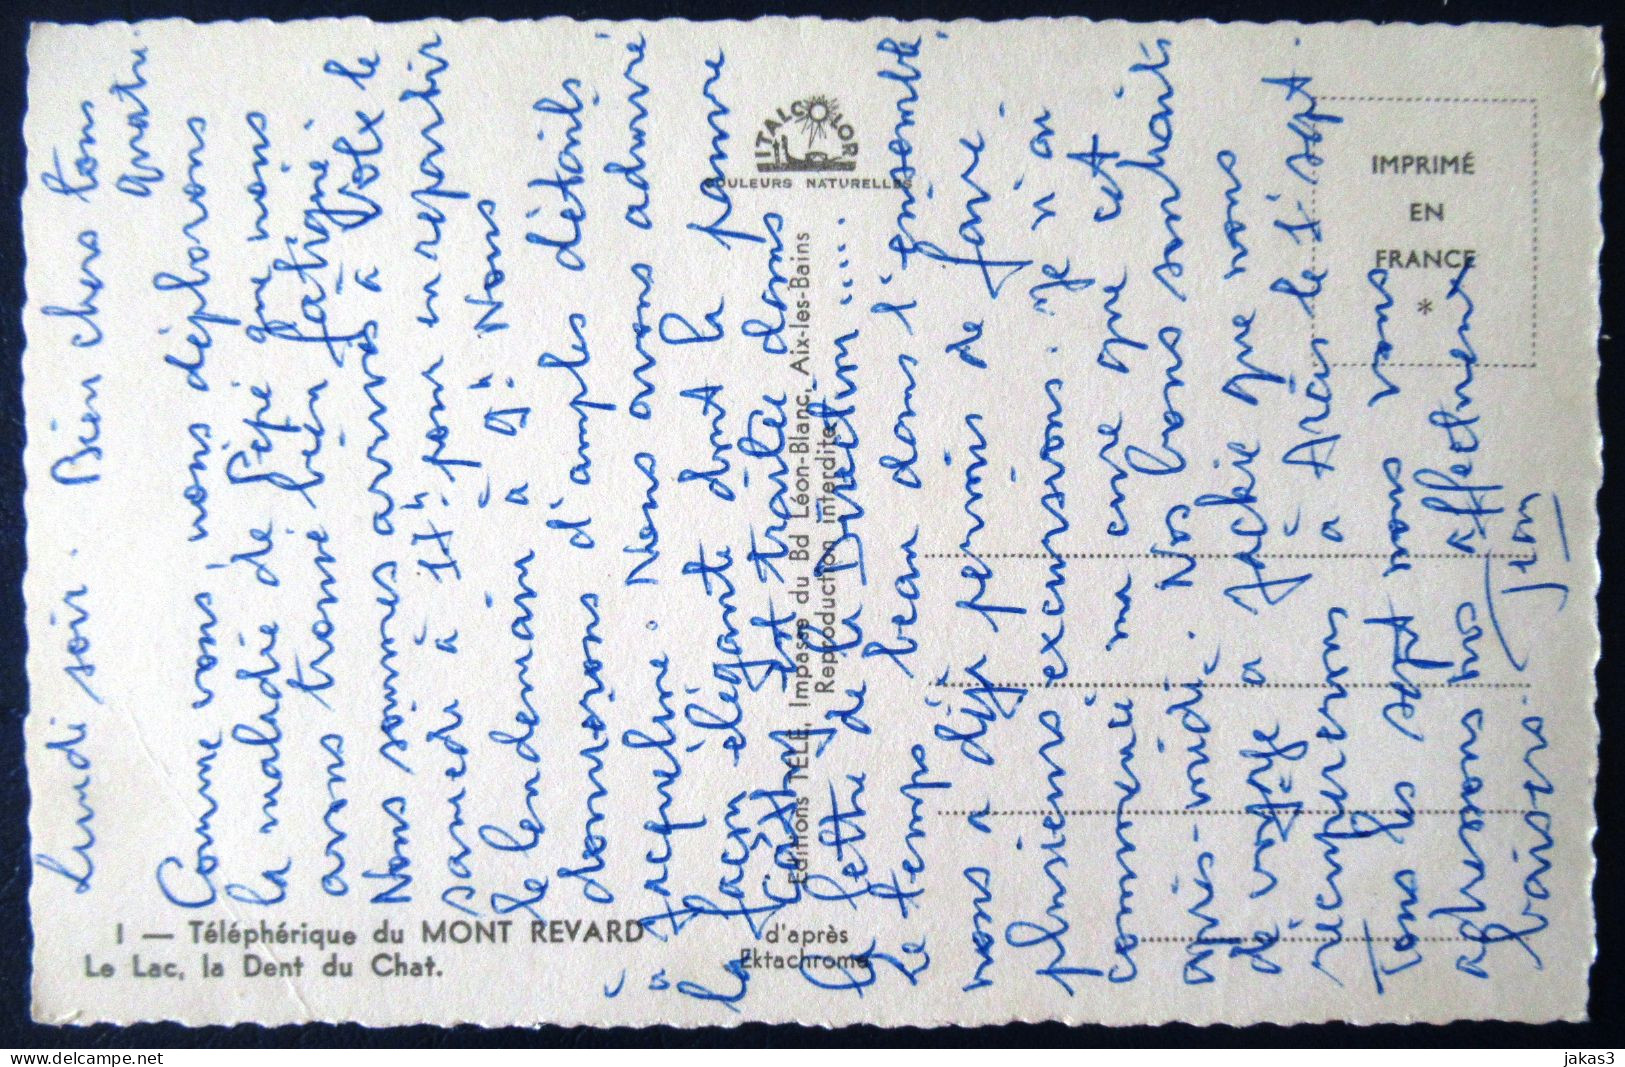 Lundi soir. Bien chers tous
quatre.
Comme vous nous déplorons
la maladie de Pépé que nous
avons trouvé bien fatigué.
Nous sommes arrivés à Volx le
samedi à 17h. pour en repartir
le lendemain à 9h. Nous
donnerons d'amples détails
à Jacqueline. Nous avons admiré
la façon élégante dont la pauvre
Cathy est traitée dans
la lettre de la Direction....
Le temps beau dans l'ensemble
nous a déjà permis de faire
plusieurs excursions. Je n'ai
commencé ma cure que cet
après-midi. Nos bons souhaits
de à Jackie que nous
récupérerons à Arles le 1. sept.
Tous les avec nous pour vous
adressons nos affectueux
baisers.
Jean
1 — Téléphérique du MONT REVARD
Le Lac, la Dent du Chat.
d'après
Ektachrome
Editions TÉLÉ, Impasse du Bd Léon-Blanc, Aix-les-Bains
Reproduction interdite
ITALCOLOR
COULEURS NATURELLES
IMPRIMÉ
EN
FRANCE
*
jakas3